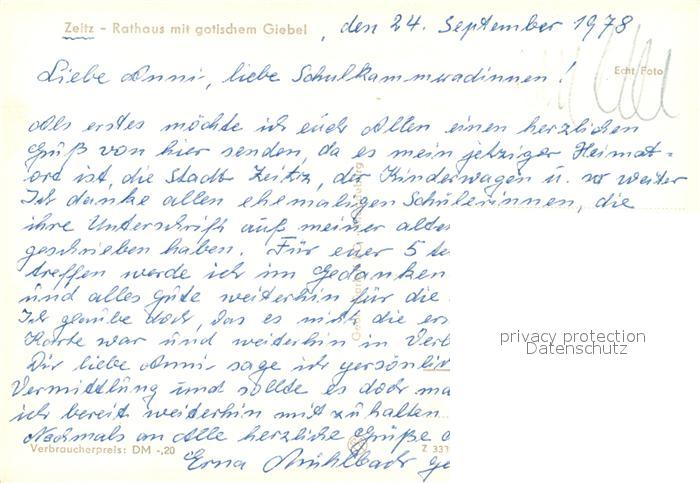 Zeitz - Rathaus mit gotischem Giebel , den 24. September 1978
Echt Foto
Liebe Anni, liebe Schulkammradinnen!
Als erstes möchte ich euch Allen einen herzlichen
Gruß von hier senden, da es mein jetziger Heimat=
ort ist, die Stadt Zeitz, der Kinderwagen u. so weiter
Ich danke allen ehemaligen Schülerinnen, die
ihre Unterschrift auf meiner alte
geschrieben haben. Für euer 5 te
treffen werde ich im Gedanken
und alles Gute weiterhin für die
Ich glaube doch, das es nicht die ers
Karte war und weiterhin in Verb
Dir liebe Anni sage ich persönlic
Vermittlung und sollte es doch ma
ich bereit weiterhin mit zu halten
Nochmals an Alle herzliche Grüße
Verbraucherpreis: DM -,20
Erna Mühlbach ge
privacy protection
Datenschutz